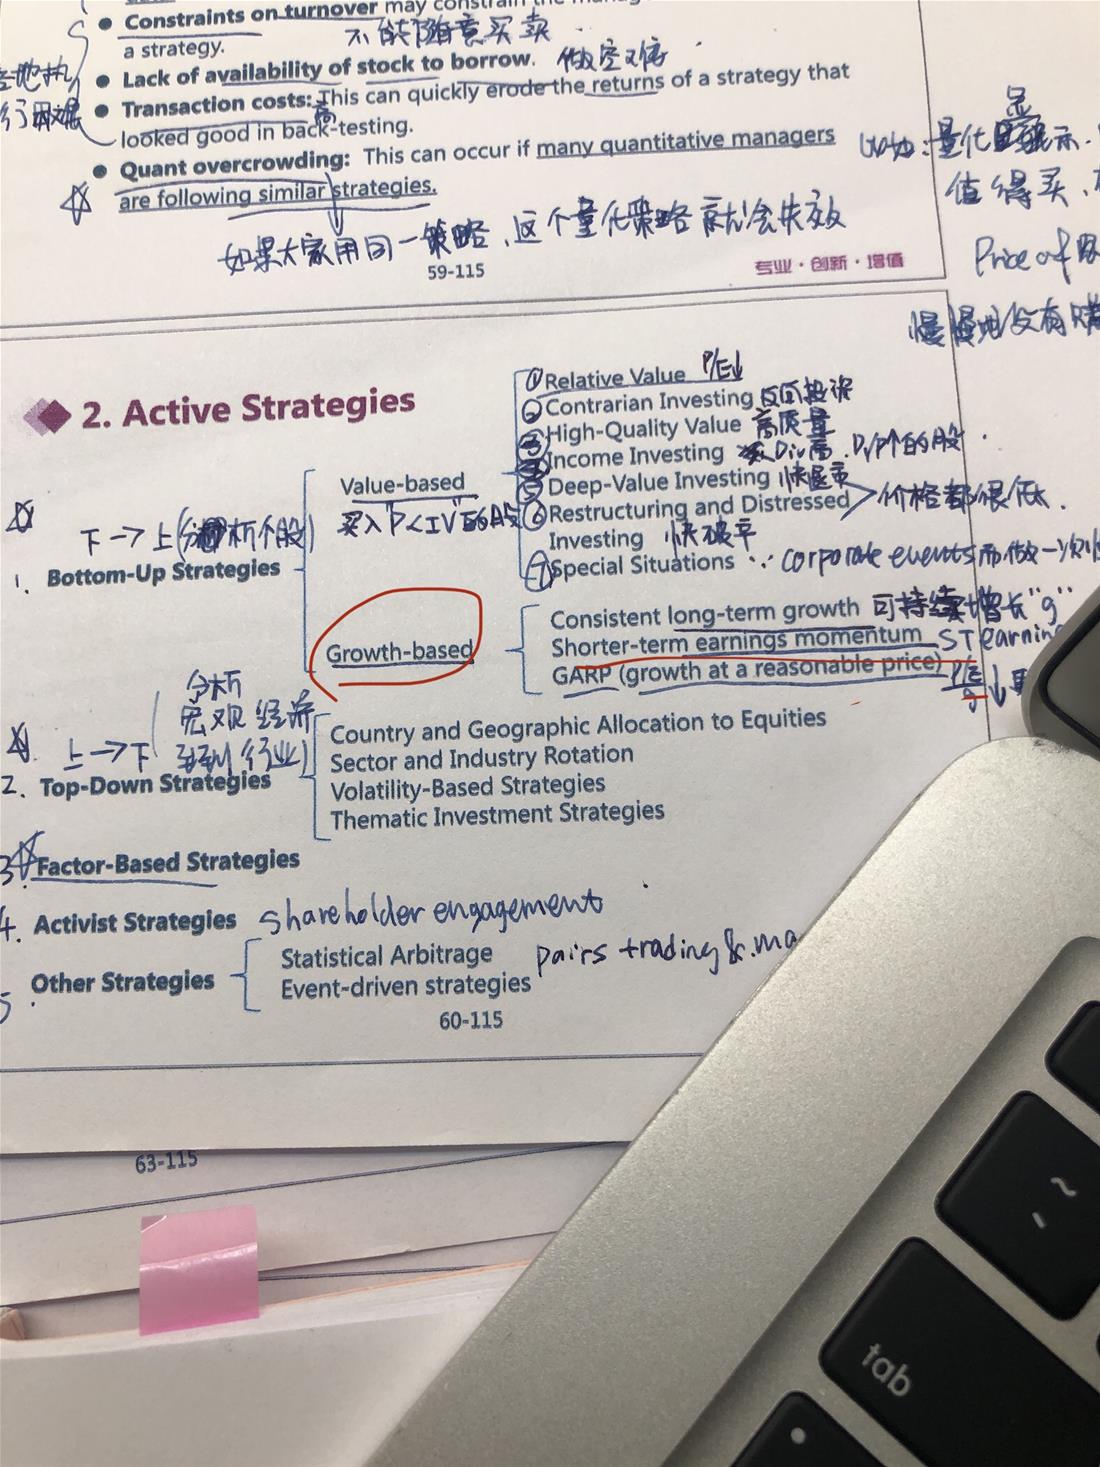 Constraints on turnover may constrain the
不能随意买卖
a strategy.
Lack of availability of stock to borrow. 做空难
Transaction costs: This can quickly erode the returns of a strategy that
高
looked good in back-testing.
Quant overcrowding: This can occur if many quantitative managers
are following similar strategies.
如果大家用同一策略、这个量化策略就会失效
59-115
专业·创新·增值
量化
显示
值得买
Price of
慢慢地没有
2. Active Strategies
①Relative Value P/E↓
②Contrarian Investing 反向投资
③High-Quality Value 高质量
④Income Investing Div高. D/P个的股.
⑤Deep-Value Investing 快退市
⑥Restructuring and Distressed 价格都很低.
Investing 快破产
⑦Special Situations ∵ corporate events而做一次
Value-based
买入"P<IV"的股
下→上(分析个股)
1. Bottom-Up Strategies
Growth-based
Consistent long-term growth 可持续增长"g"
Shorter-term earnings momentum ST earnin
GARP (growth at a reasonable price) P/E/g↓
分析
宏观经济
上→下 到行业
2. Top-Down Strategies
Country and Geographic Allocation to Equities
Sector and Industry Rotation
Volatility-Based Strategies
Thematic Investment Strategies
3. Factor-Based Strategies
4. Activist Strategies shareholder engagement
5. Other Strategies
Statistical Arbitrage pairs trading &
Event-driven strategies
60-115
63-115
~
tab